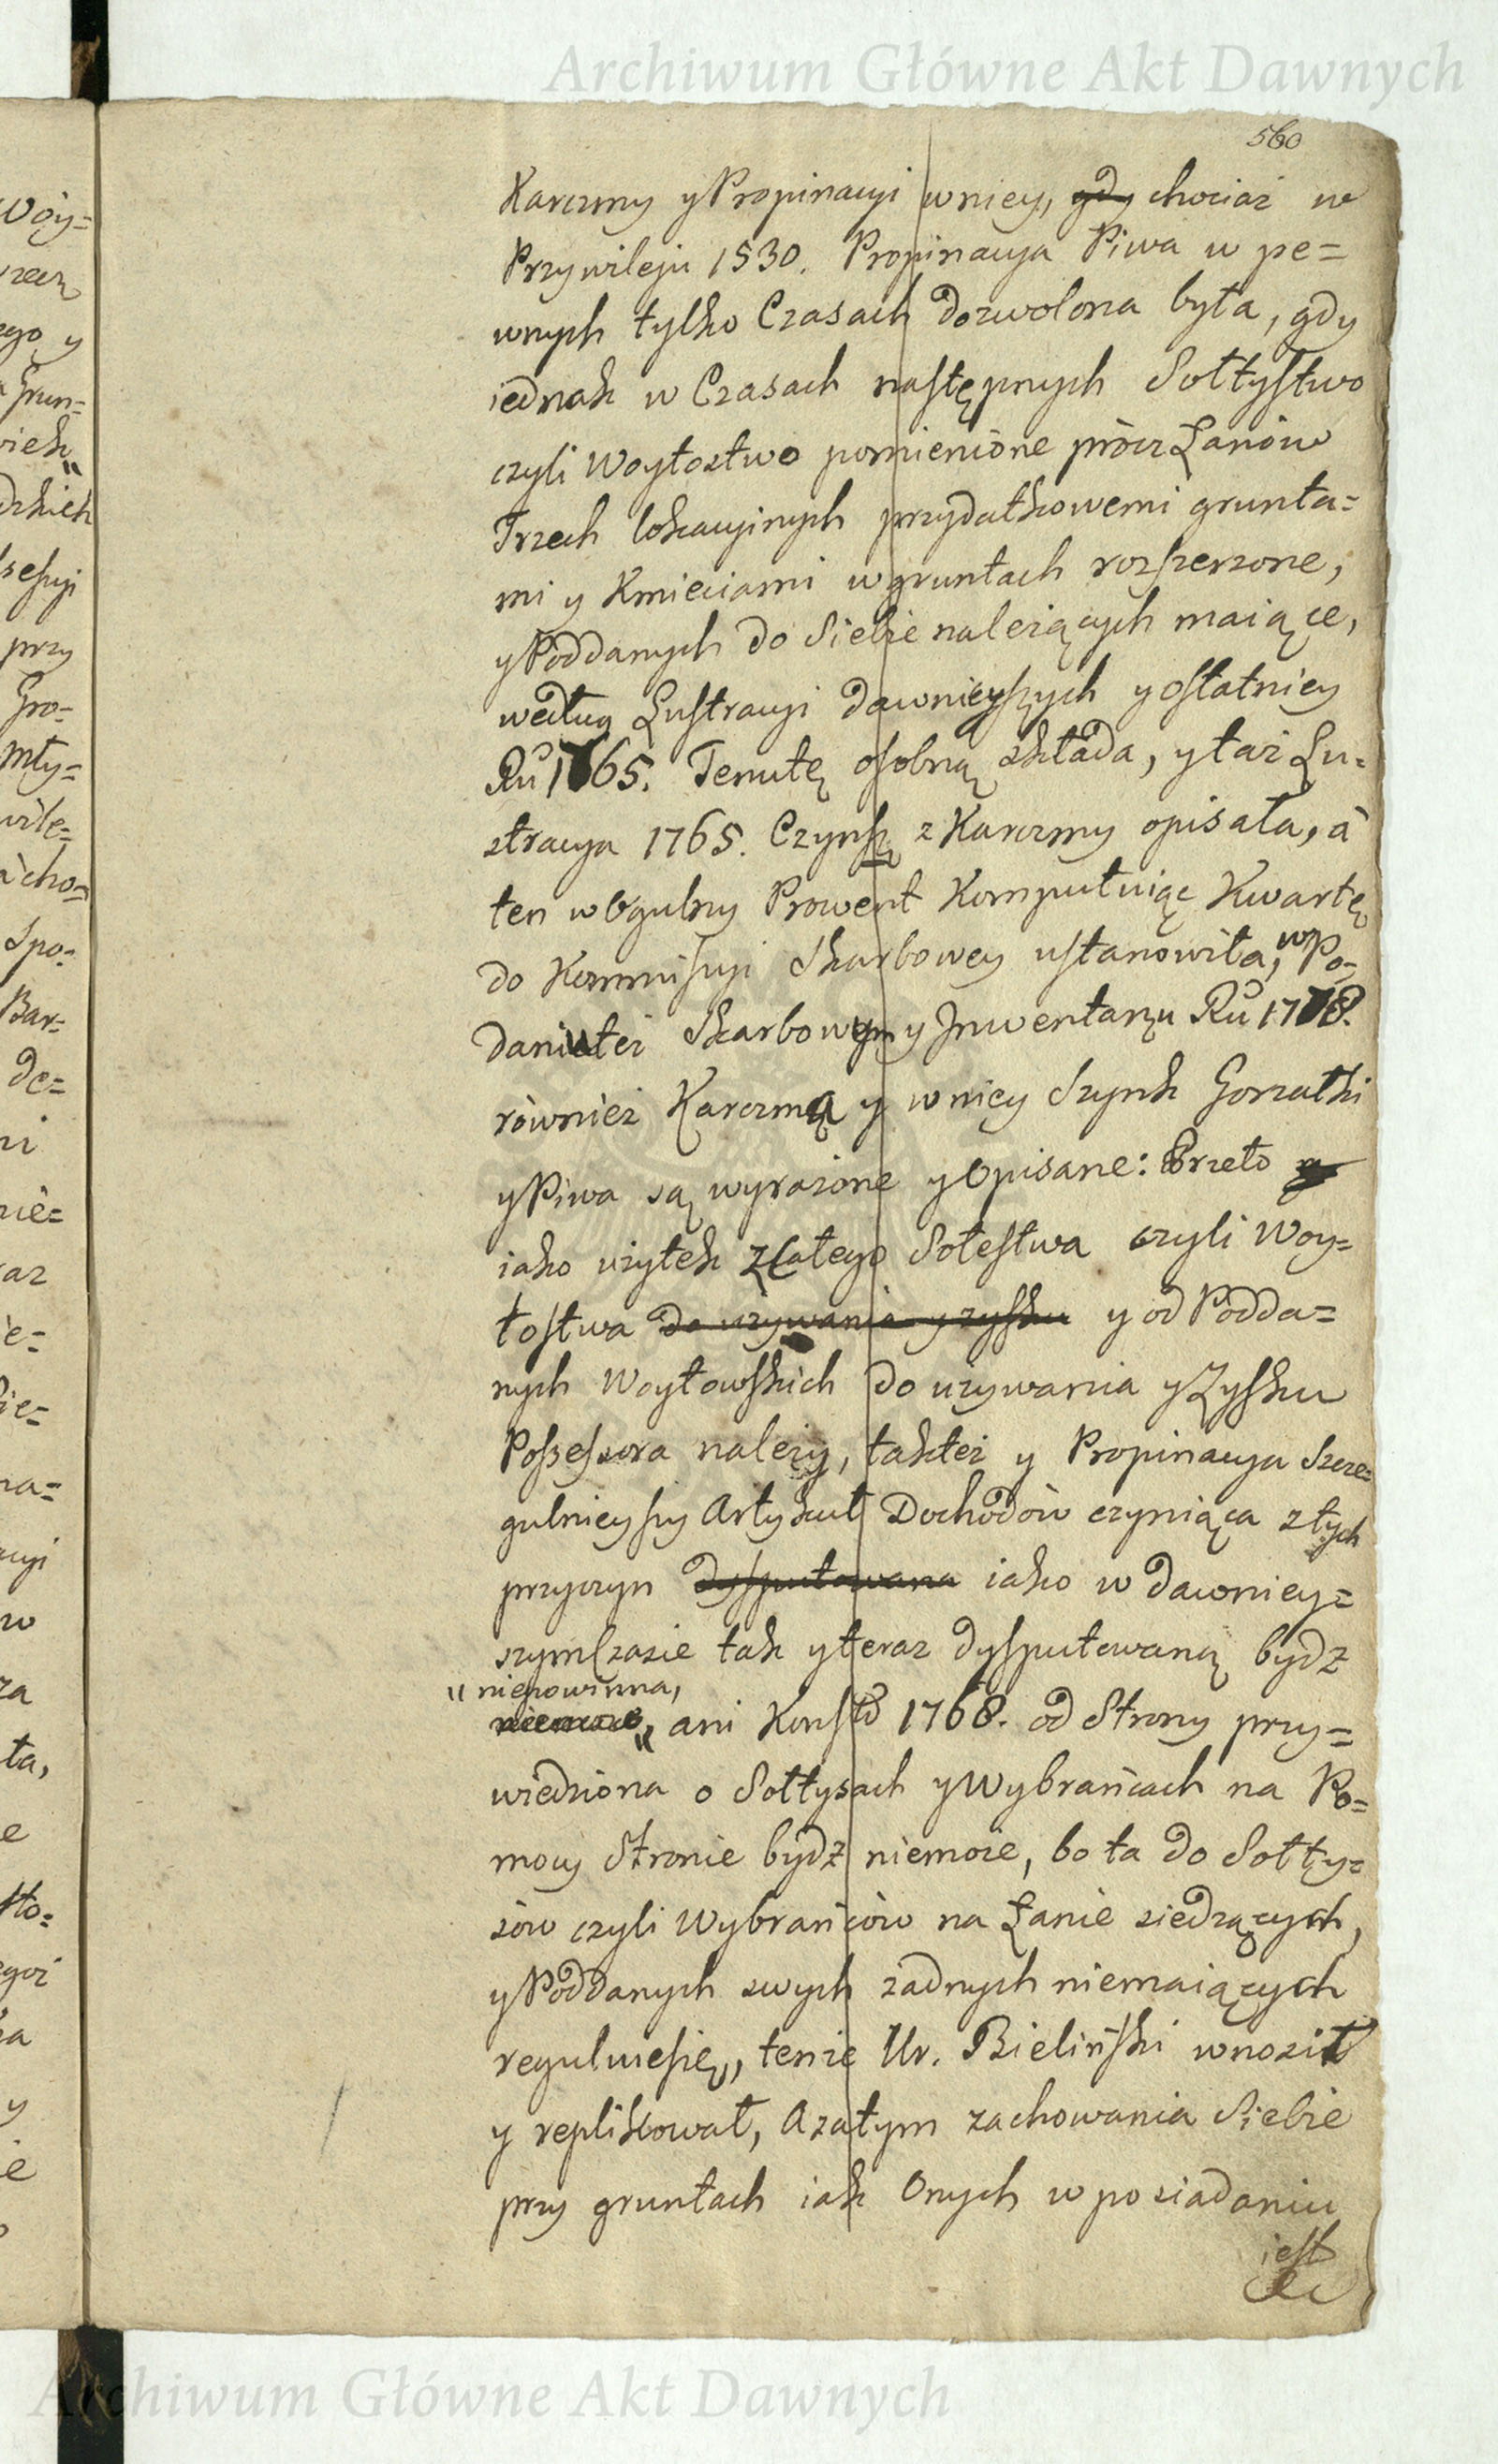 Archiwum Główne Akt Dawnych
560
Karczmy y Propinacyi w niey, gdy chociaż w
Przywileju 1530. Propinacya Piwa w pe=
wnych tylko Czasach dozwolona była, gdy
iednak w Czasach następnych Sołtystwo
czyli Woytostwo pomienione prócz Łanów
Trzech lokacyinych przydatkowemi grunta=
mi y Kmieciami w gruntach rozszerzone,
y Poddanych do Siebie należących maiące,
według Lustracyi dawnieyszych y ostatniey
Ru 1765. Tenutę osobną składa, y taż Lu=
stracya 1765. Czynsz z Karczmy opisała, á
ten w Ogulny Prowent Komputuiąc Kwartę
do Kommissyi Skarbowey ustanowiła, w Po=
daniu też Skarbowym y Jnwentarzu Ru 1778.
również Karczma y w niey Szynk Gorzałki
y Piwa są wyrażone y Opisane: Przeto y
iako użytek z Całego Sołestwa czyli Woy=
tostwa do używania y zysku y od Podda=
nych Woytowskich do używania y Zysku
Possessora należy, takteż y Propinacya Szcze=
gulnieyszy Artykuł Dochodów czyniąca z tych
przyczyn dysputowana iako w dawniey=
szym Czasie tak y teraz dysputowaną bydz
" niepowinna,
niemoże " ani Konsto 1768. od Strony przy=
wiedziona o Sołtysach y Wybrańcach na Po=
mocy Stronie bydź niemoże, bo ta do Sołty=
sów czyli Wybrańców na Łanie siedzących,
y Poddanych swych żadnych niemaiących
reguluiesię, tenże Ur. Bieliński wnosił
y replikował, A zatym zachowania Siebie
przy gruntach iak Onych w posiadaniu
iest
Woy=
ego y
Grun=
przy
Gro=
Mły=
Spo=
Bar=
de=
ni
nié=
raz
na=
w
za
ta,
e
y
Archiwum Główne Akt Dawnych